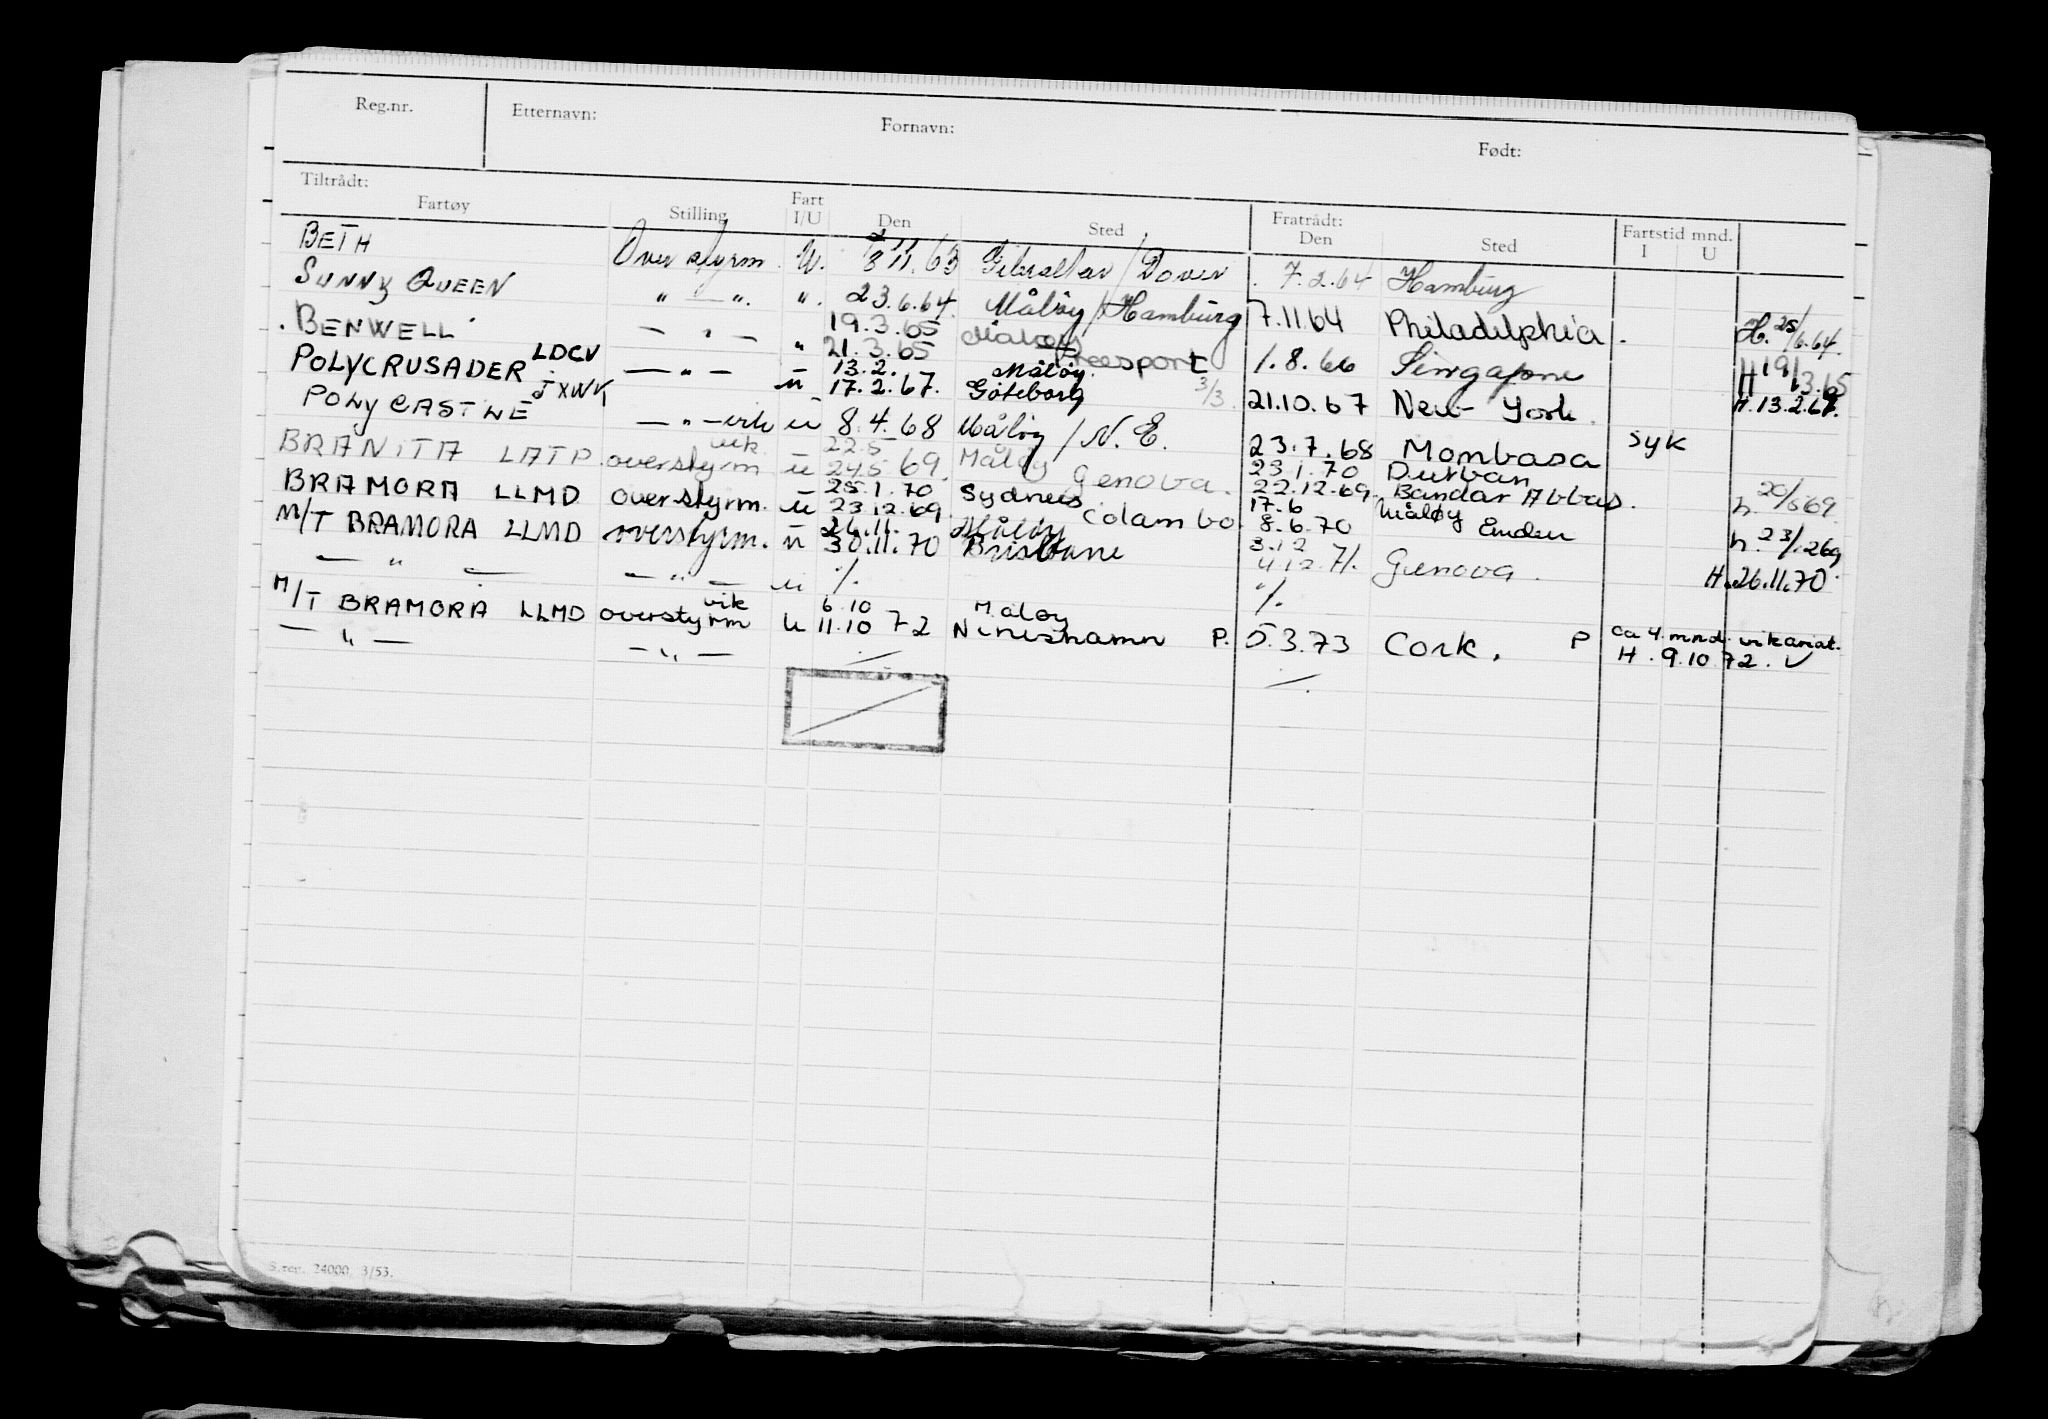 Reg.nr. Etternavn: Fornavn: Født:
Tiltrådt: Fratrådt:
Fartøy Stilling Fart I/U Den Sted Den Sted Fartstid mnd. I U
BETH Overstyrm. U. 8 11.63 Gibraltar / Dover 7.2.64 Hamburg
SUNNY QUEEN " — ". ". 23.6.64. Måløy / Hamburg 7.11.64 Philadelphia. H. 25/6.64.
19.3.65 Måløy
BENWELL — " — " 21.3.65 Freeport 1.8.66 Singapore H 19/3.65
13.2. Måløy.
POLYCRUSADER LDCV — " — u 17.2.67. Göteborg 3/3 21.10.67 New-York. H. 13.2.67.
POLYCASTLE JXWK — " — vik u 8.4.68 Måløy / N.E. 23.7.68 Mombasa syk
vik. 22.5 Måløy 23.1.70 Durban
BRANITA LATP. overstyrm u 24.5 69. Genova. 22.12.69. Bandar Abbas. h. 20/5 69.
25.1.70 Sydney 17.6 Måløy
BRAMORA LLMD overstyrm. u 23.12.69. Colombo. 8.6.70 Emden h. 23/12 69
26.11. Måløy 3.12
M/T BRAMORA LLMD overstyrm. u 30.11.70 Brisbane 4.12.71. Genova. H. 26.11.70.
— " — — " — u ./. ./.
vik 6.10 Måløy
M/T BRAMORA LLMD overstyrm u 11.10 72 Nineshamn P. 5.3.73 Cork. P ca 4. mnd. vikariat.
— " — — " — ./. ./. H. 9.10.72. ✓
S.reg. 24000. 3/53.